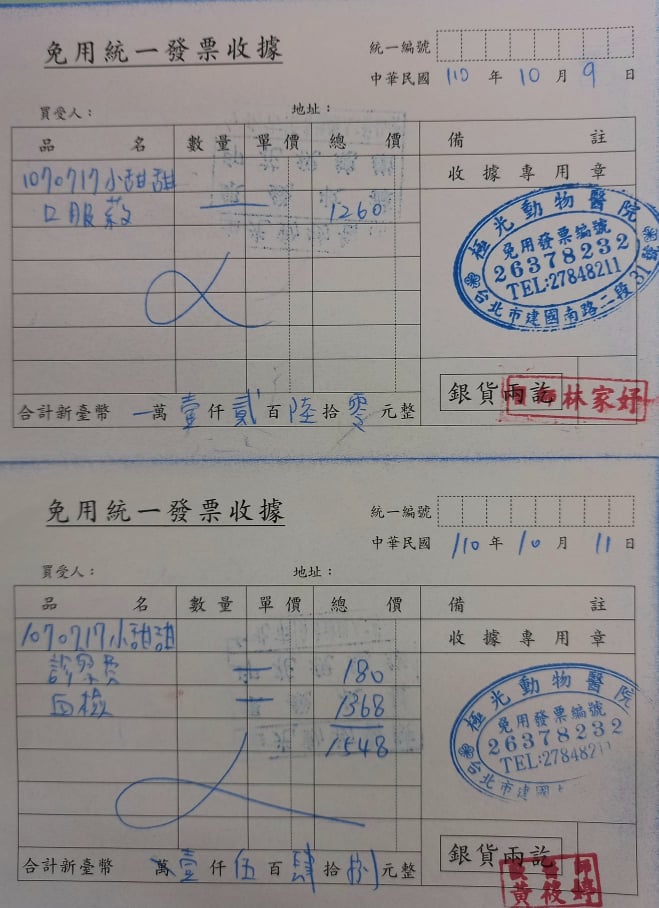 免用統一發票收據
統一編號
中華民國 110 年 10 月 9 日
買受人： 地址：
品名 數量 單價 總價 備註
1070717小甜甜 收據專用章
口服藥 1260
極光動物醫院
免用發票編號
26378232
TEL:27848211
台北市建國南路二段31號
銀貨兩訖
林家妤
合計新臺幣 萬壹仟貳百陸拾零元整
免用統一發票收據
統一編號
中華民國 110 年 10 月 11 日
買受人： 地址：
品名 數量 單價 總價 備註
1070717小甜甜 收據專用章
診察費 一 180
血檢 一 1368
1548
極光動物醫院
免用發票編號
26378232
TEL:2784821
台北市建國
銀貨兩訖
黃筱婷
合計新臺幣 萬壹仟伍百肆拾捌元整